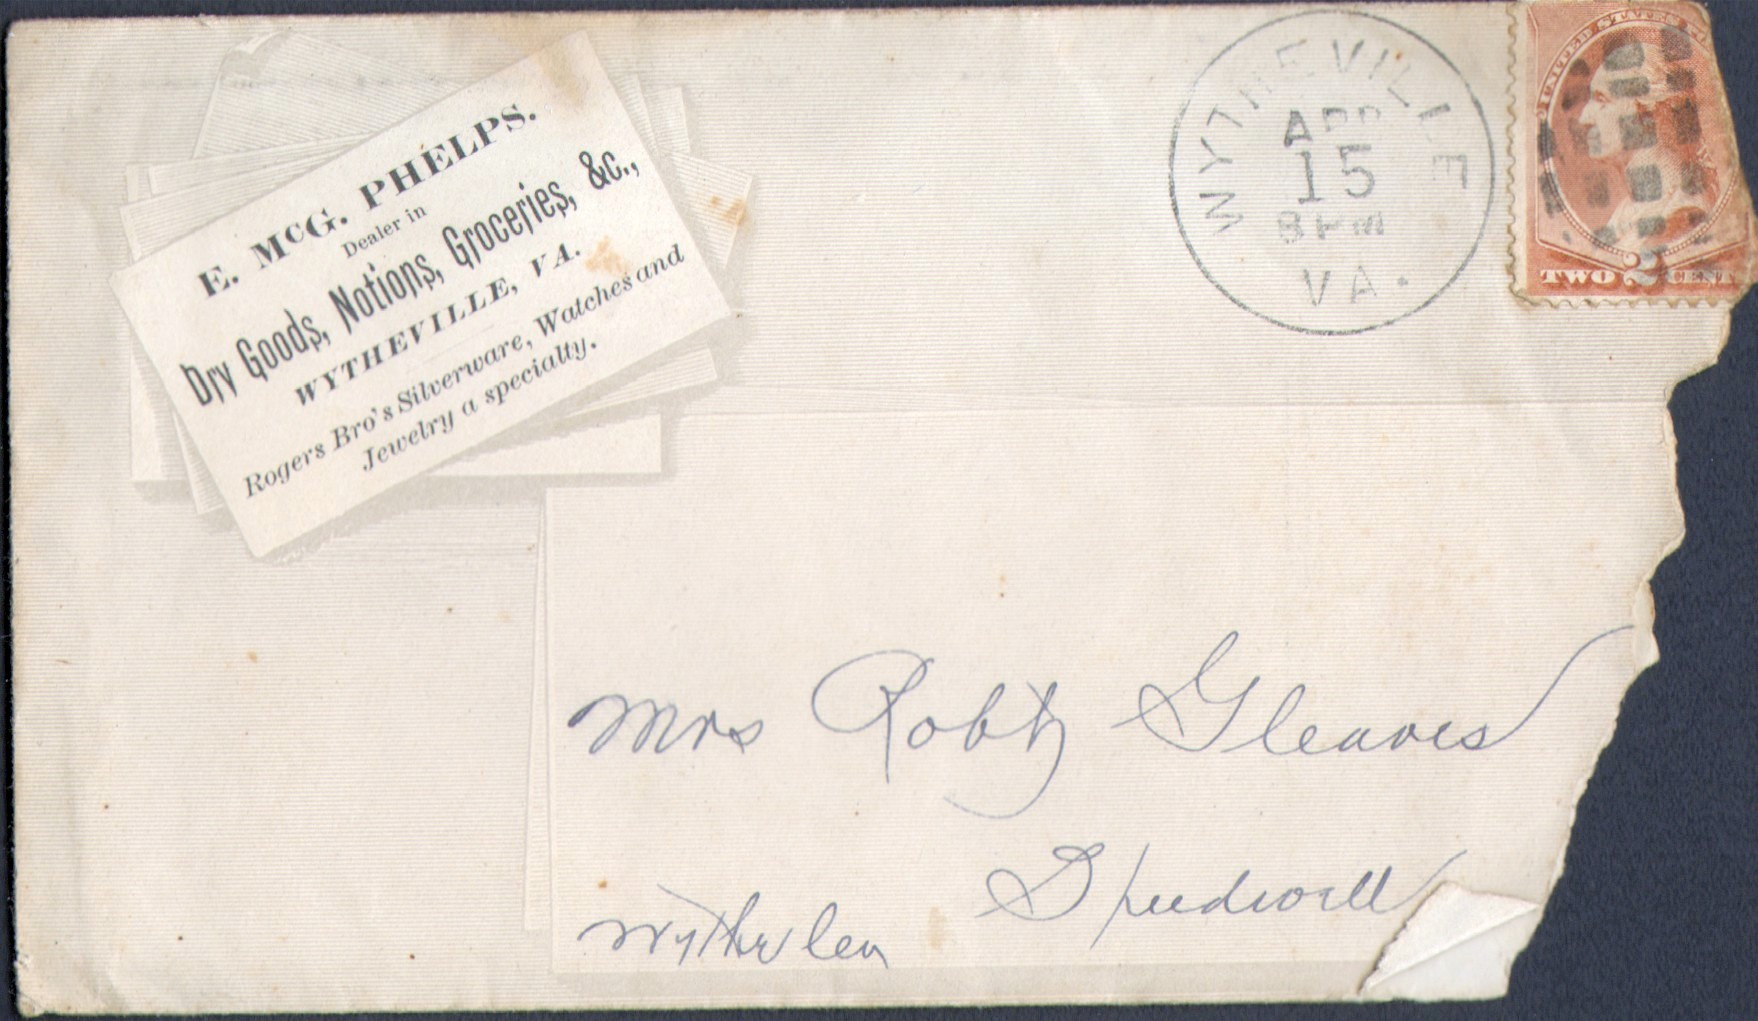 E. McG. PHELPS.
Dealer in
Dry Goods, Notions, Groceries, &c.,
WYTHEVILLE, VA.
Rogers Bro's Silverware, Watches and
Jewelry a specialty.
WYTHEVILLE
APR
15
8 PM
VA.
UNITED STATES
TWO 2 CENT
Mrs Robt Gleaves
Speedwell
Wythe